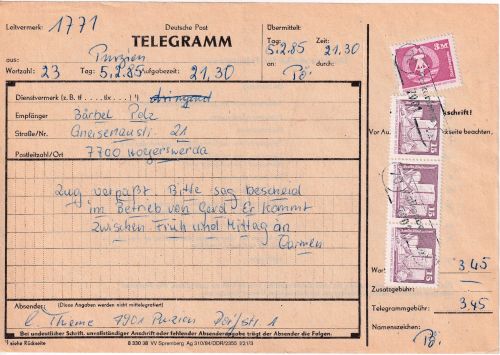 Leitvermerk: 1771
Deutsche Post
TELEGRAMM
Übermittelt:
Tag: 5.2.85 Zeit: 21,30
aus: Purzien
Wortzahl: 23 Tag: 5.2.85 Aufgabezeit: 21,30
an: Pö. durch:
3 M
DDR
Dienstvermerk (z. B. tf ... tlx ... ) *) dringend
Empfänger Bärbel Pelz
Straße/Nr. Gneisenaustr. 21
Postleitzahl/Ort 7700 Hoyerswerda
schrift!
Vor Aus
kseite beachten.
Zug verpaßt. Bitte sag bescheid
im Betrieb von Gerd Er kommt
zwischen Früh und Mittag an
Carmen
15
15
15
Wort 3 45
Zusatzgebühr:
Telegrammgebühr: 3 45
Namenszeichen: Pö.
Absender: (Diese Angaben werden nicht mittelegrafiert)
C. Thieme 7901 Purzien
Bei undeutlicher Schrift, unvollständiger Anschrift oder fehlender Absenderangabe trägt der Absender die Folgen.
*) siehe Rückseite
8 330 38 VV Spremberg Ag 310/84/DDR/2355 2313